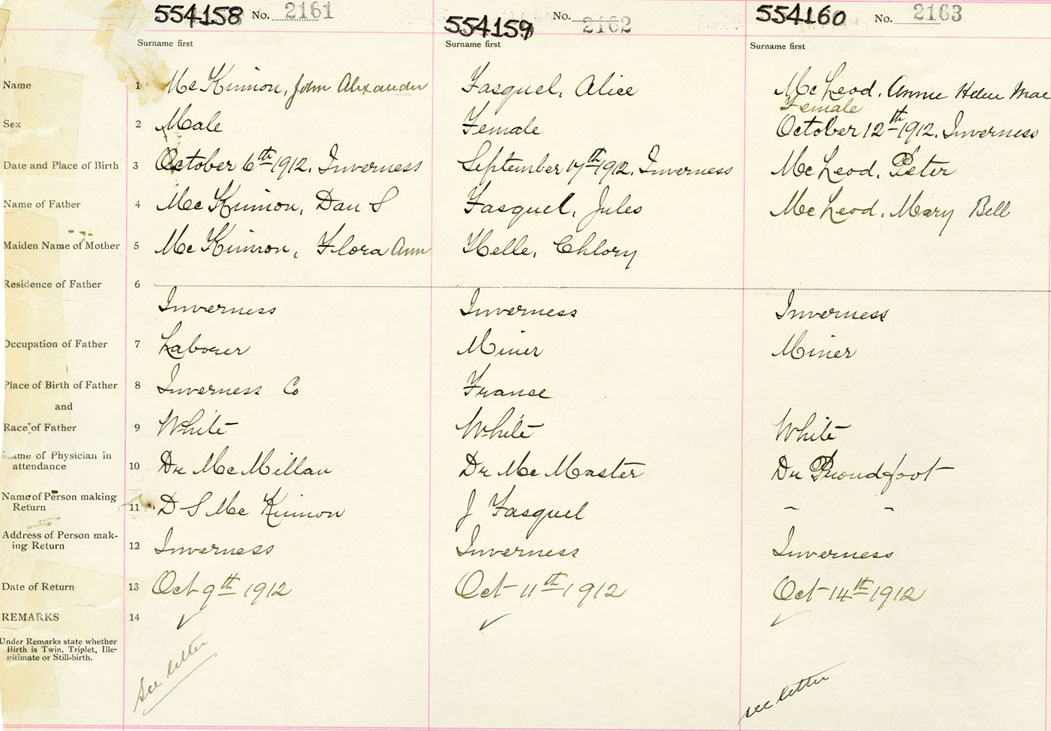 554158 No. 2161 554159 No. 2162 554160 No. 2163
Surname first Surname first Surname first
Name 1 McKinnon, John Alexander Fasquel, Alice McLeod, Annie Helen Mae
Female
Sex 2 Male Female October 12th 1912, Inverness
Date and Place of Birth 3 October 6th 1912, Inverness September 17th 1912, Inverness McLeod, Peter
Name of Father 4 McKinnon, Dan S Fasquel, Jules McLeod, Mary Bell
Maiden Name of Mother 5 McKinnon, Flora Ann Helle, Chlory
Residence of Father 6
Inverness Inverness Inverness
Occupation of Father 7 Laborer Miner Miner
Place of Birth of Father 8 Inverness Co France
and
Race of Father 9 White White White
Name of Physician in
attendance 10 Dr McMillan Dr McMaster Dr Proudfoot
Name of Person making
Return 11 D S McKinnon J Fasquel - -
Address of Person mak-
ing Return 12 Inverness Inverness Inverness
Date of Return 13 Oct 9th 1912 Oct 11th 1912 Oct 14th 1912
REMARKS 14 ✓ ✓ ✓
Under Remarks state whether
Birth is Twin, Triplet, Ille-
gitimate or Still-birth.
see letter see letter